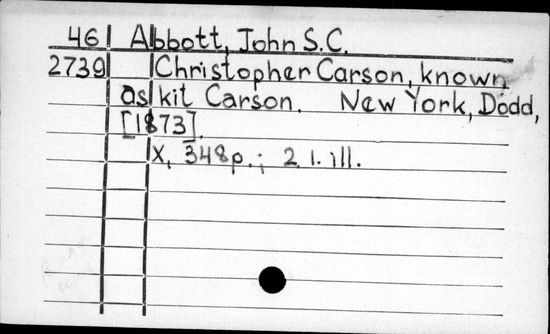 46 Abbott, John S.C.
2739 Christopher Carson, known
as kit Carson. New York, Dodd,
[1873].
X, 348p.; 2 l. ill.